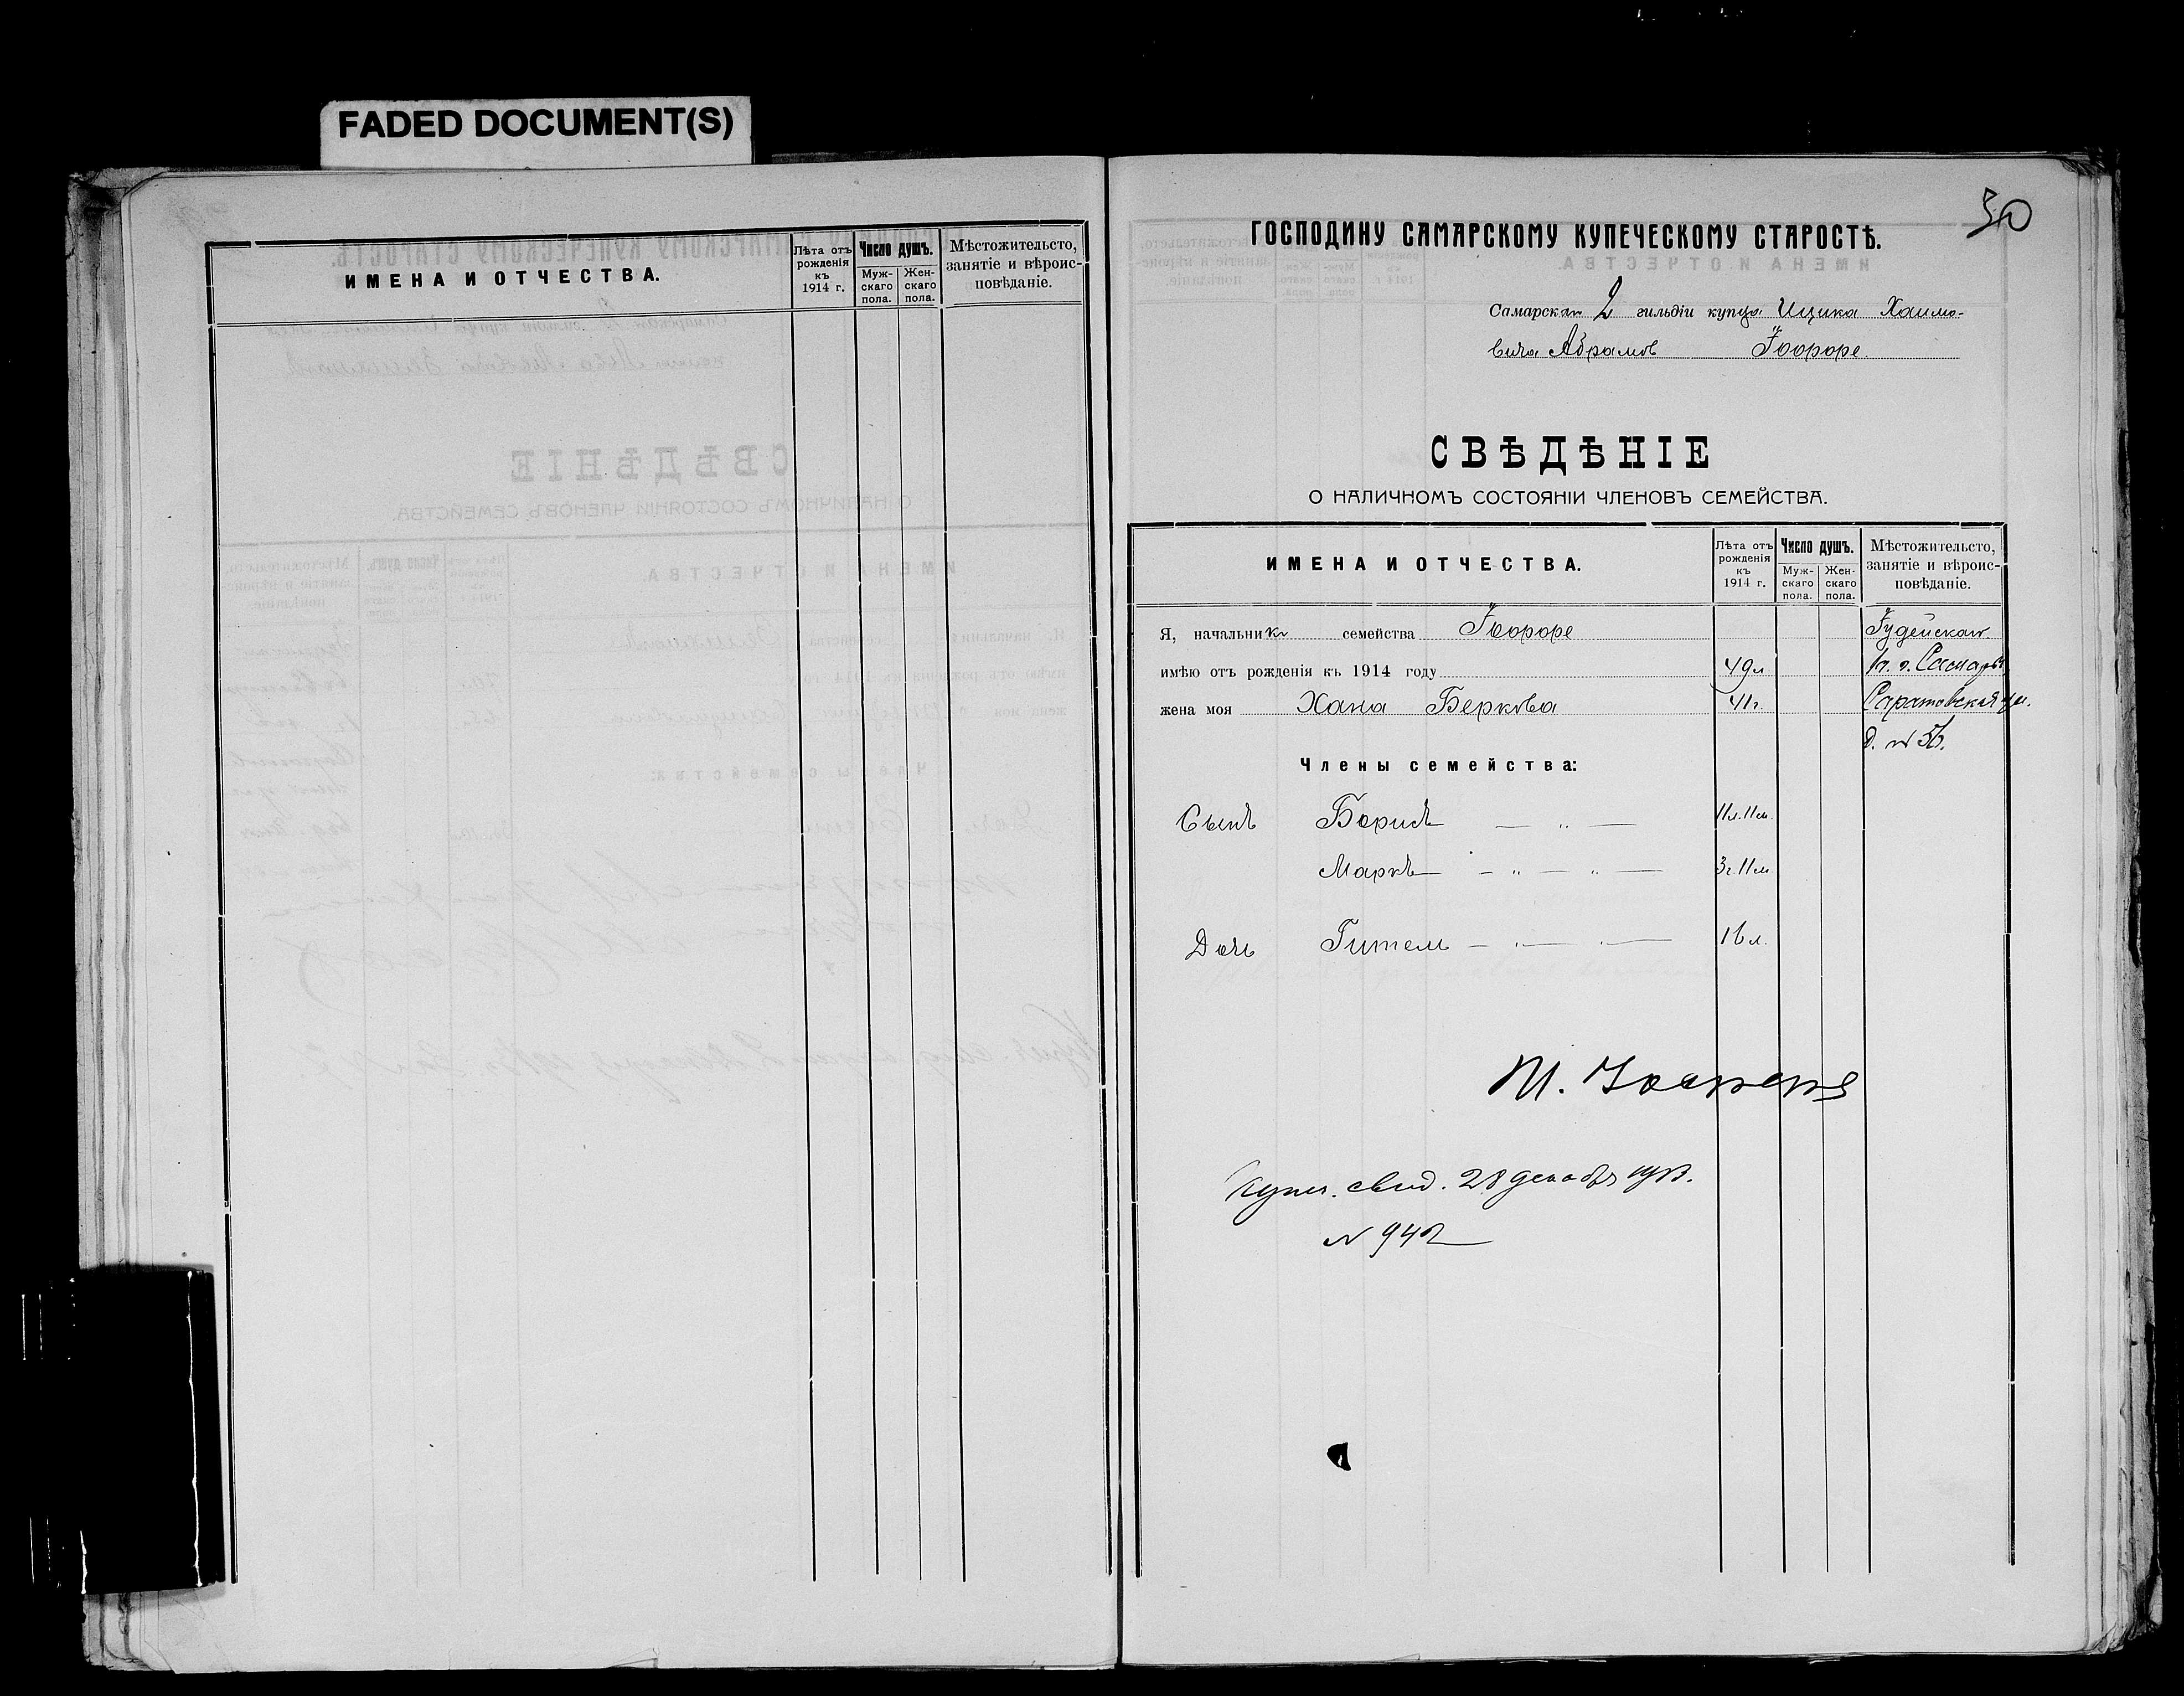 FADED DOCUMENT(S)
ИМЕНА И ОТЧЕСТВА.
Лѣта отъ рожденія къ 1914 г.
Число душъ.
Муж-скаго пола.
Жен-скаго пола.
Мѣстожительсто, занятіе и вѣроис-повѣданіе.
30
ГОСПОДИНУ САМАРСКОМУ КУПЕЧЕСКОМУ СТАРОСТѢ.
Самарскаго 2 гильдіи купца Ицика Хаимо-
вича Абрамов
СВѢДѢНІЕ
О НАЛИЧНОМЪ СОСТОЯНІИ ЧЛЕНОВЪ СЕМЕЙСТВА.
ИМЕНА И ОТЧЕСТВА.
Лѣта отъ рожденія къ 1914 г.
Число душъ.
Муж-скаго пола.
Жен-скаго пола.
Мѣстожительсто, занятіе и вѣроис-повѣданіе.
Я, начальникъ семейства Іудейскаго
имѣю отъ рожденія къ 1914 году 49 л г. Самара
жена моя Хана Беркова 41 г. Саратовская ул.
д. №
Члены семейства:
Сынъ Борисъ — „ — 11 л. 11 м.
Маркъ — „ — „ — 3 г. 11 м
Дочь Гитель — „ — „ — 16 л.
Купч. свид. 28 декабря 1913.
№ 942